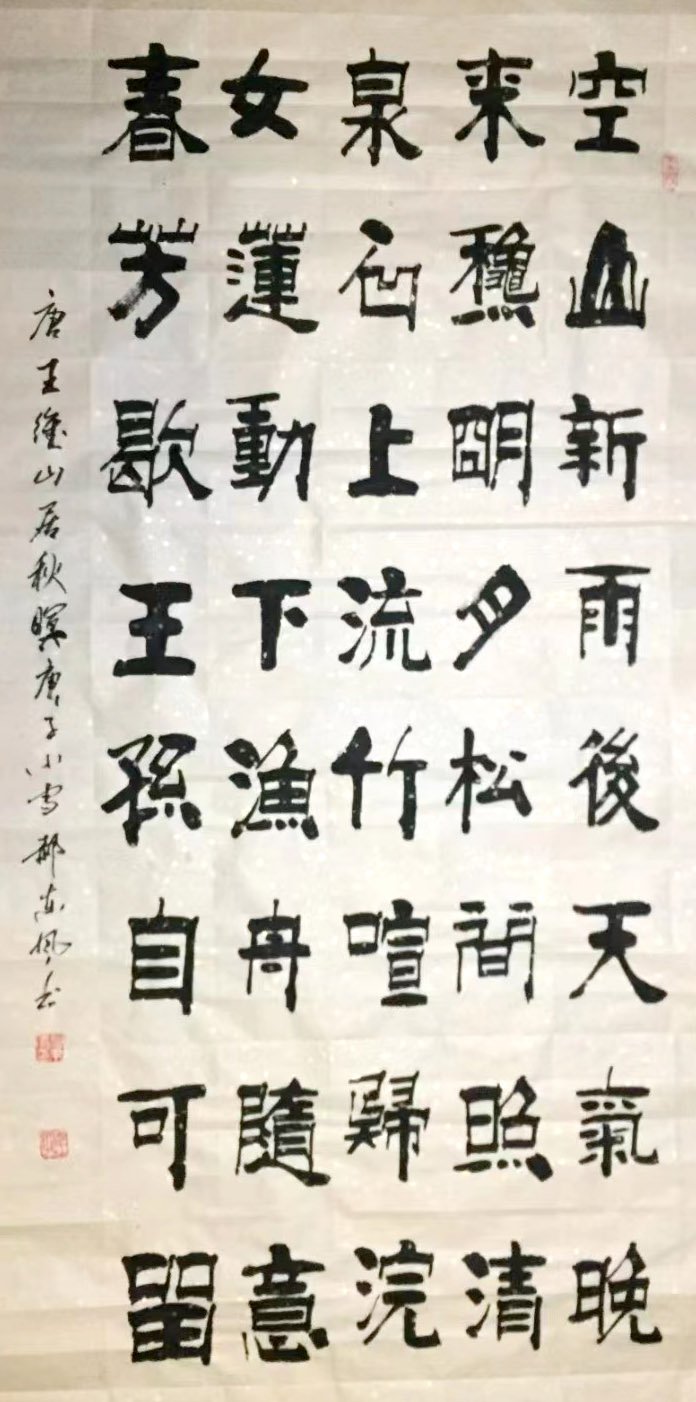 空山新雨後天氣晚
来龝朙月松間照清
泉石上流竹喧歸浣
女蓮動下漁舟隨意
春芳歇王孫自可留
唐王維山居秋暝庚子小雪郝东风书